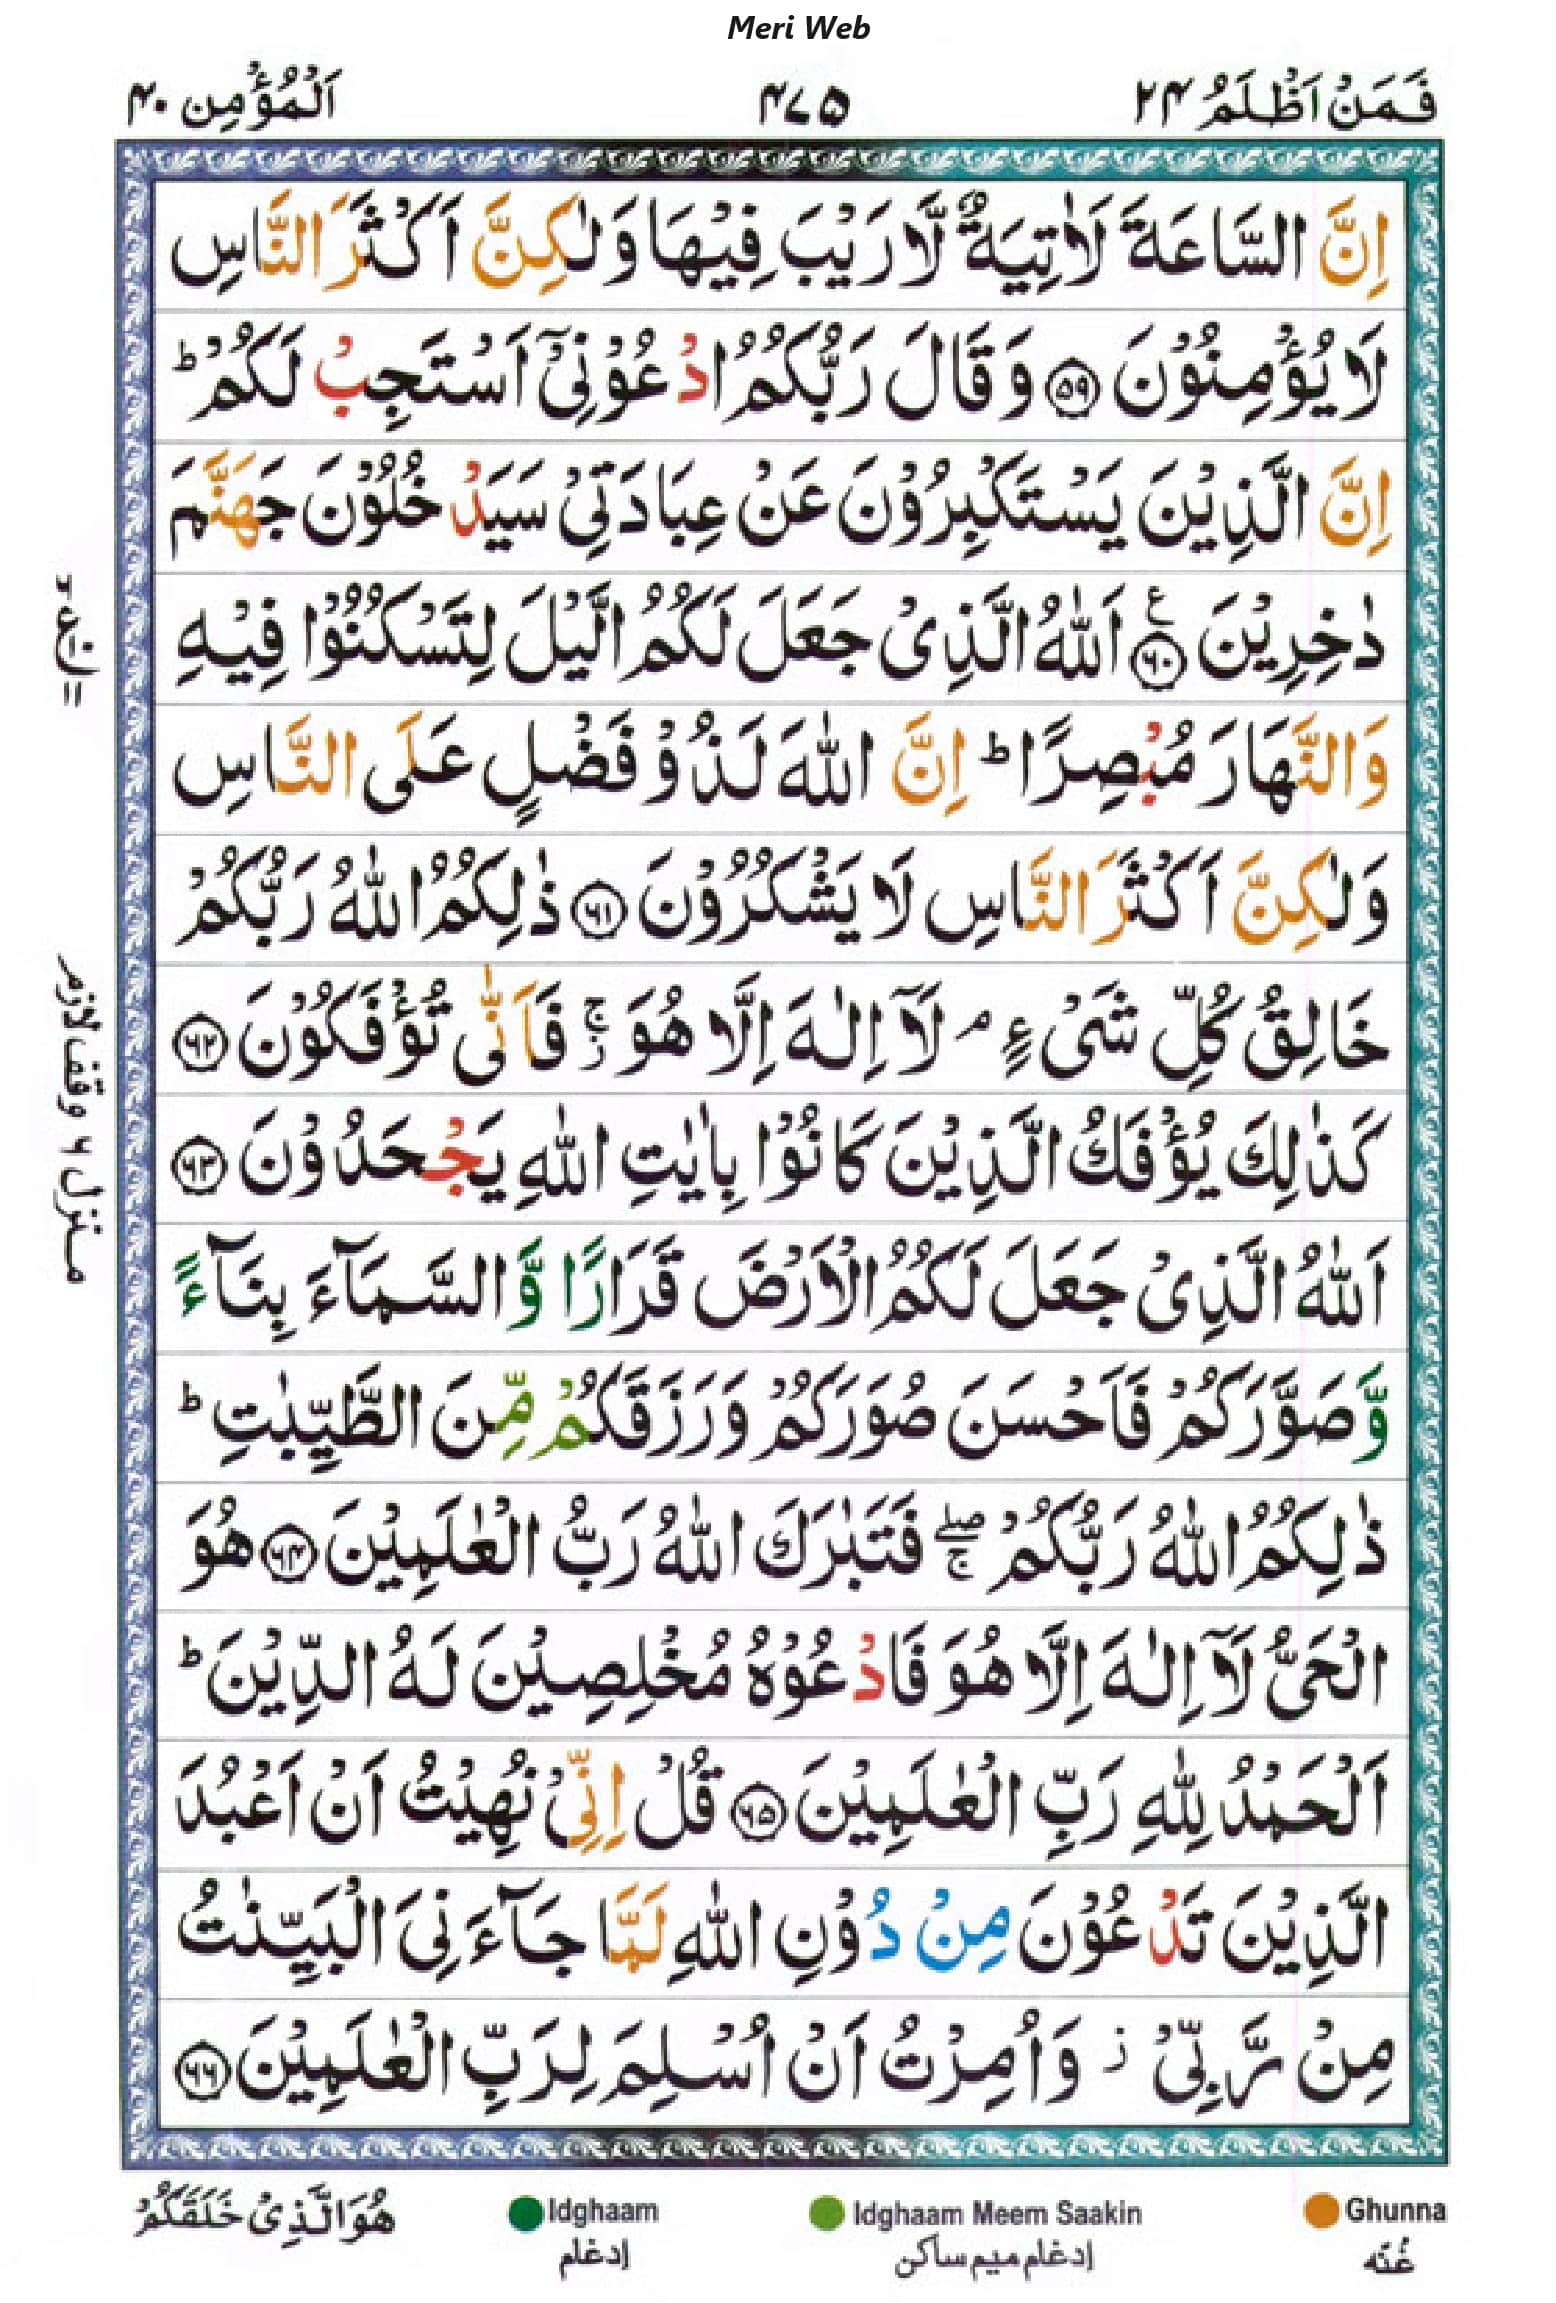 Meri Web
فَمَنْ اَظْلَمُ ۲۴
۴۷۵
اَلْمُؤْمِن ۴۰
اِنَّ السَّاعَةَ لَاٰتِيَةٌ لَّا رَيْبَ فِيْهَا وَلٰكِنَّ اَكْثَرَ النَّاسِ
لَا يُؤْمِنُوْنَ ﴿۵۹﴾ وَقَالَ رَبُّكُمُ ادْعُوْنِیْۤ اَسْتَجِبْ لَكُمْ ؕ
اِنَّ الَّذِيْنَ يَسْتَكْبِرُوْنَ عَنْ عِبَادَتِیْ سَيَدْخُلُوْنَ جَهَنَّمَ
دٰخِرِيْنَ ﴿۶۰﴾ ع اَللّٰهُ الَّذِیْ جَعَلَ لَكُمُ الَّيْلَ لِتَسْكُنُوْا فِيْهِ
وَالنَّهَارَ مُبْصِرًا ؕ اِنَّ اللّٰهَ لَذُوْ فَضْلٍ عَلَی النَّاسِ
وَلٰكِنَّ اَكْثَرَ النَّاسِ لَا يَشْكُرُوْنَ ﴿۶۱﴾ ذٰلِكُمُ اللّٰهُ رَبُّكُمْ
خَالِقُ كُلِّ شَیْءٍ ۘ لَاۤ اِلٰهَ اِلَّا هُوَ ۚز فَاَنّٰی تُؤْفَكُوْنَ ﴿۶۲﴾
كَذٰلِكَ يُؤْفَكُ الَّذِيْنَ كَانُوْا بِاٰيٰتِ اللّٰهِ يَجْحَدُوْنَ ﴿۶۳﴾
اَللّٰهُ الَّذِیْ جَعَلَ لَكُمُ الْاَرْضَ قَرَارًا وَّ السَّمَآءَ بِنَآءً
وَّ صَوَّرَكُمْ فَاَحْسَنَ صُوَرَكُمْ وَرَزَقَكُمْ مِّنَ الطَّيِّبٰتِ ؕ
ذٰلِكُمُ اللّٰهُ رَبُّكُمْ ۖۚ فَتَبٰرَكَ اللّٰهُ رَبُّ الْعٰلَمِيْنَ ﴿۶۴﴾ هُوَ
الْحَیُّ لَاۤ اِلٰهَ اِلَّا هُوَ فَادْعُوْهُ مُخْلِصِيْنَ لَهُ الدِّيْنَ ؕ
اَلْحَمْدُ لِلّٰهِ رَبِّ الْعٰلَمِيْنَ ﴿۶۵﴾ قُلْ اِنِّیْ نُهِيْتُ اَنْ اَعْبُدَ
الَّذِيْنَ تَدْعُوْنَ مِنْ دُوْنِ اللّٰهِ لَمَّا جَآءَنِیَ الْبَيِّنٰتُ
مِنْ رَّبِّیْ ز وَاُمِرْتُ اَنْ اُسْلِمَ لِرَبِّ الْعٰلَمِيْنَ ﴿۶۶﴾
منزل ۶ وقف لازم
Ghunna
غُنّه
Idghaam Meem Saakin
إدغام ميم ساكن
Idghaam
إدغام
هُوَ الَّذِیْ خَلَقَكُمْ